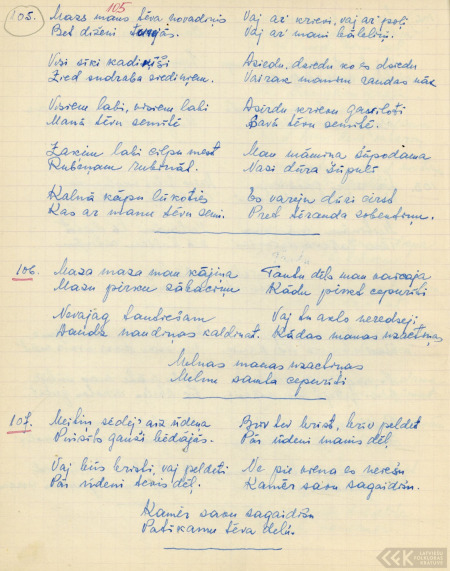 105.
105
Mazs mans tēva novadiņis
Bet diženi turējās.
Visi sīki kadiķīši
Zied sudraba ziediņiem.
Visiem labi, visiem labi
Manā tēvu sētiņē
Zaķim labi cilpu mest
Rubeņam rubināt.
Kalnā kāpu lūkoties
Kas ar manu tēvu sētu.
Vaj ar krievi, vaj ar poļi
Vaj ar mani bāleliņi.
Dziedu, dziedu ko es dziedu
Vairāk manim raudas nāk
Dzirdu krievu gaviļoti
Savā tēvu sētiņē.
Man māmiņa šūpodama
Nazi dūra šūpulī
Es varēju dūzi cirst
Pret tēranda zobentiņu.
106.
Maza maza man kājiņa
Mazu pirku zābaciņu
Nevajag tautiešam
Daudz naudiņas kaldināt.
Tautu dēls man vaicāja
Kādu pirkt cepurīti
Vaj tu aklo neredzēji
Kādas manas uzactiņas
Melnas manas uzactiņas
Melnu samta cepurīti
107.
Meitiņ, sēdēj' aiz ūdeņa
Puisīts gauži bēdājās.
Vaj būs bristi, vaj peldēti
Pār ūdeni tēvis dēļ.
Briv tev brist, brīv peldēt
Pār ūdeni manis dēļ
Ne pie viena es neiešu
Kamēr savu sagaidīšu.
Kamēr savu sagaidīšu
Patīkamu tēva dēlu.
LATVIEŠU
FOLKLORAS
KRĀTUVE